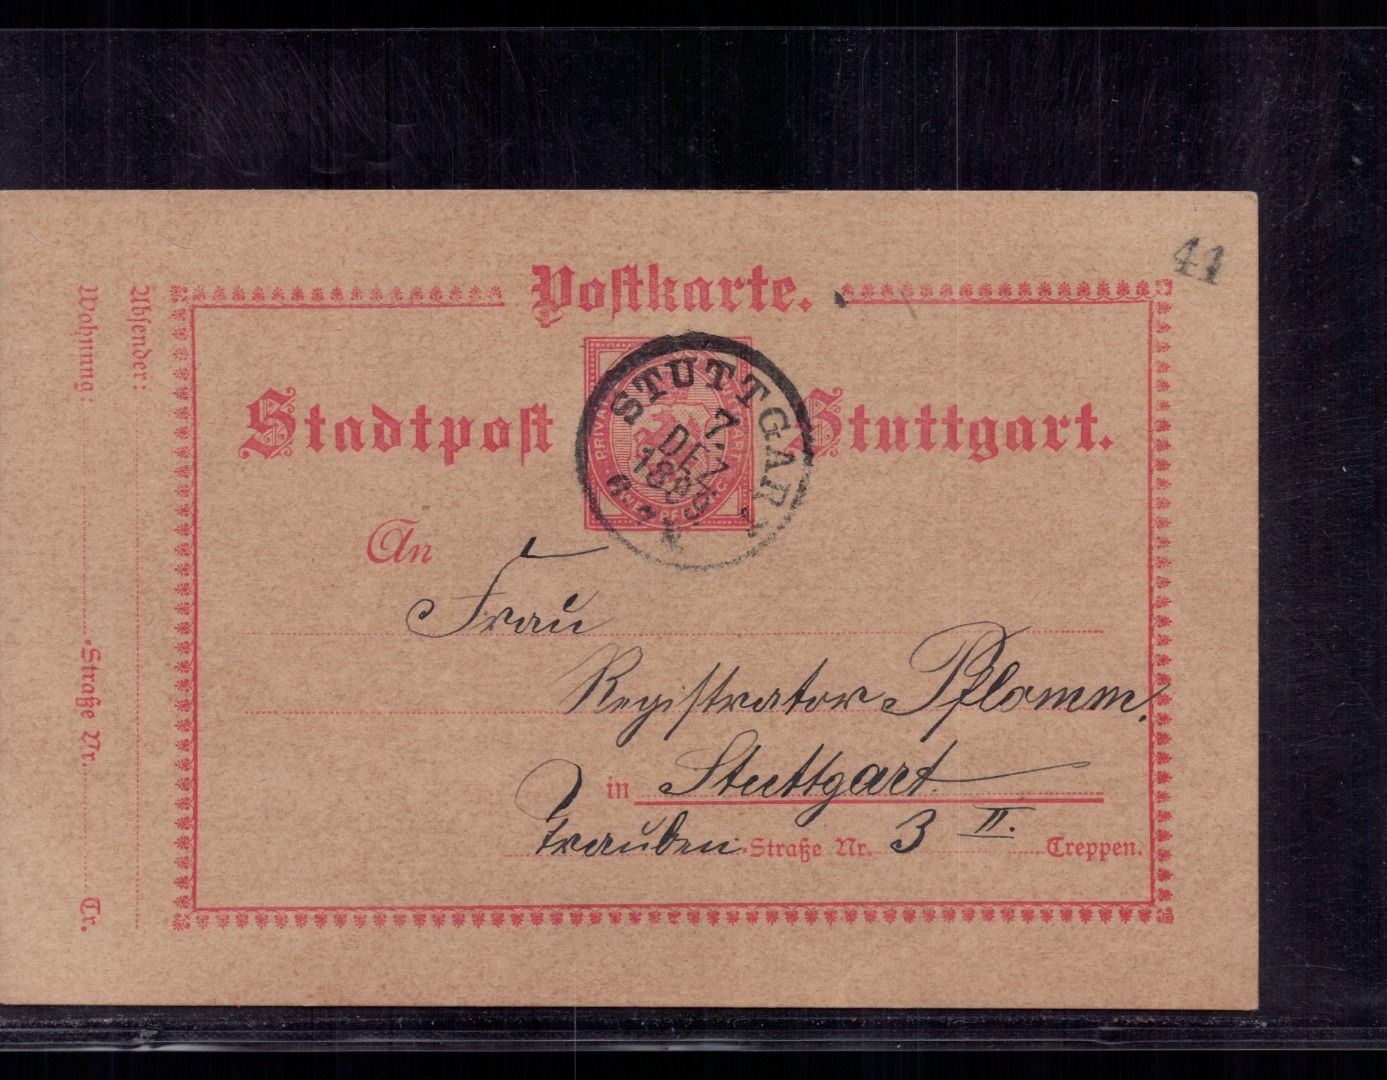 41
Postkarte.
Stadtpost Stuttgart.
STUTTGART
7.
DEZ
PRIVAT
An
Frau
Registrator Pflomm.
in Stuttgart.
Trauben-Straße Nr. 3 II. Treppen.
Absender:
Wohnung: -Straße Nr. Tr.